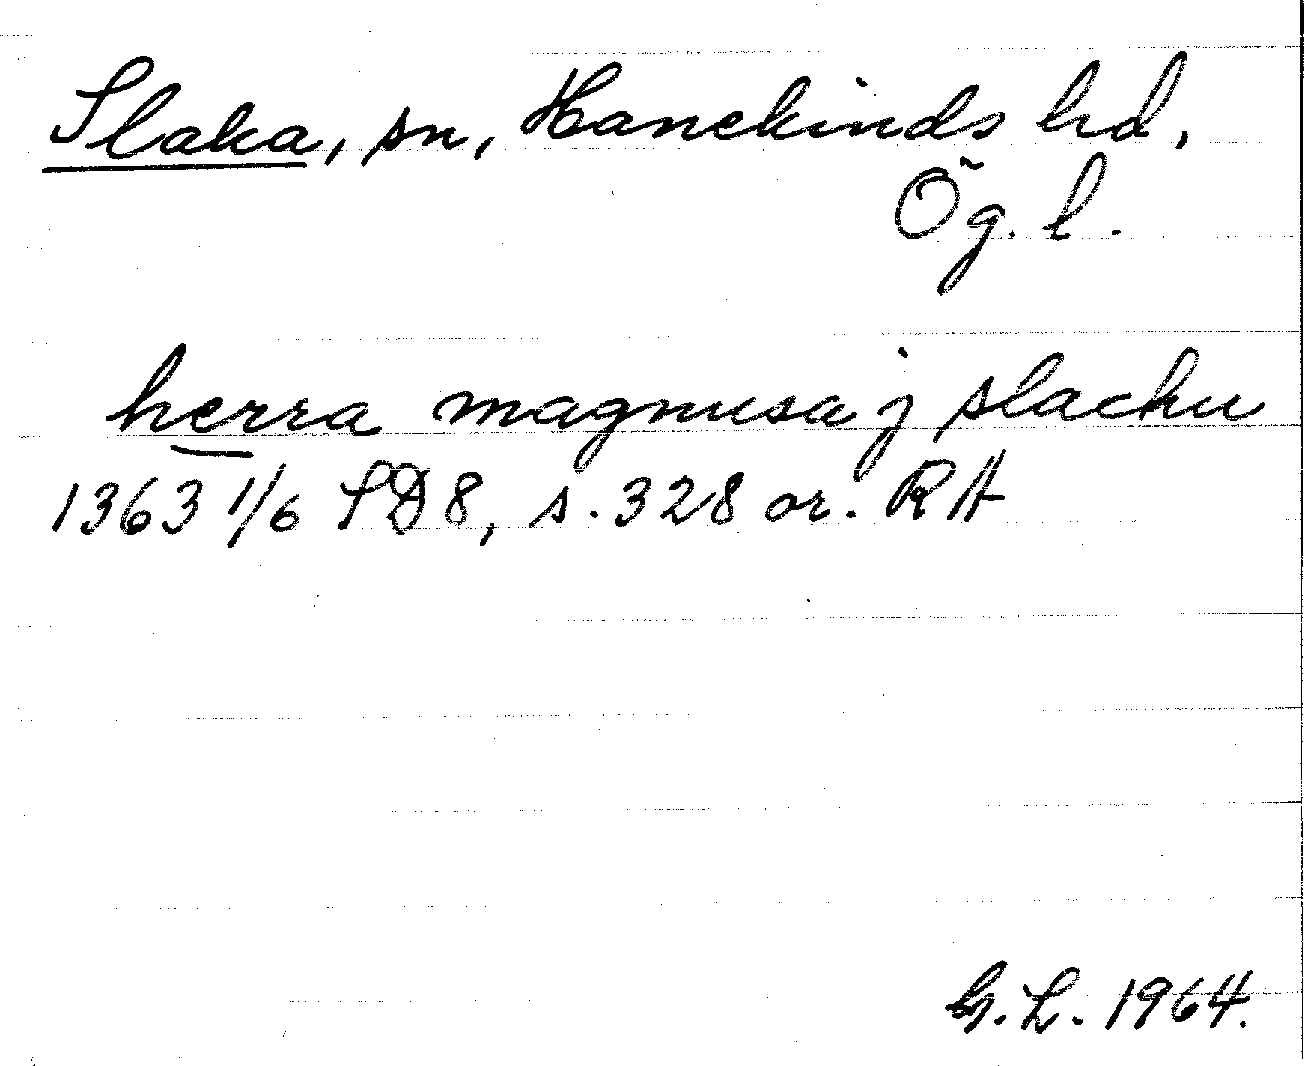 Slaka, sn, Hanekinds hd,
Ög. l.
herra magnusa j slachu
1363 1/6 SD 8, s. 328 or. RA
G. L. 1964.